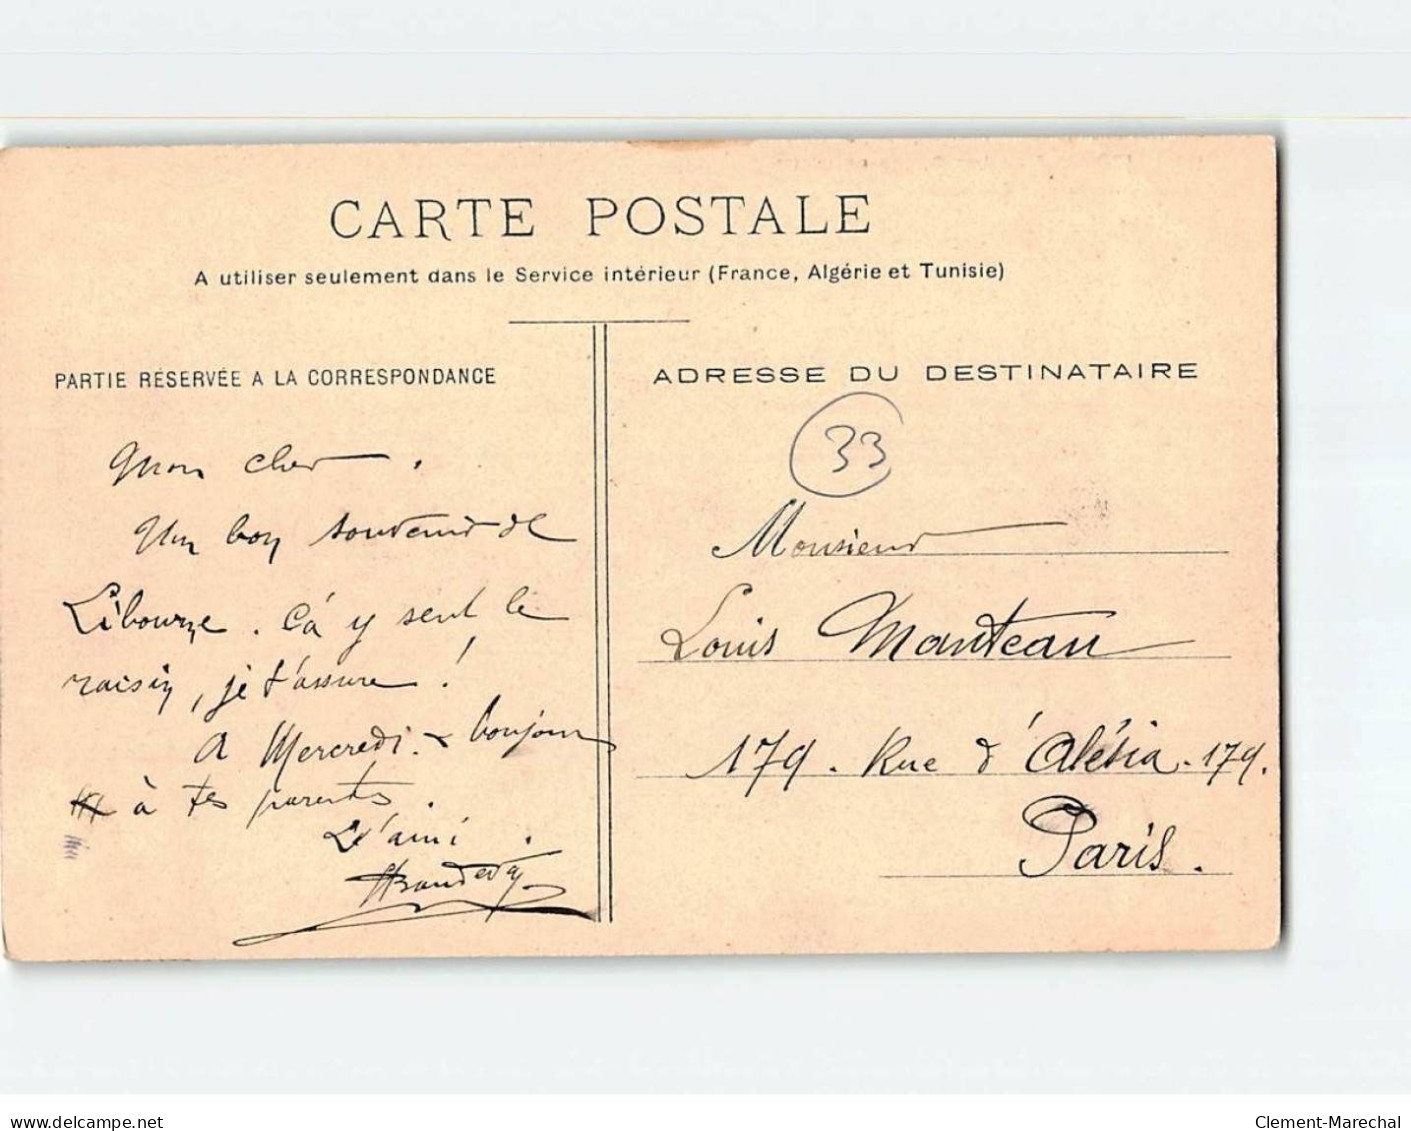 CARTE POSTALE
A utiliser seulement dans le Service intérieur (France, Algérie et Tunisie)
PARTIE RÉSERVÉE A LA CORRESPONDANCE
Mon cher.
Un bon souvenir de
Libourne. Çà y sent le
raisin, je t'assure !
A Mercredi. & bonjour
à tes parents.
L'ami.
ADRESSE DU DESTINATAIRE
33
Monsieur
Louis Manteau
179. Rue d'Alésia. 179.
Paris.
www.delcampe.net
Clement-Marechal